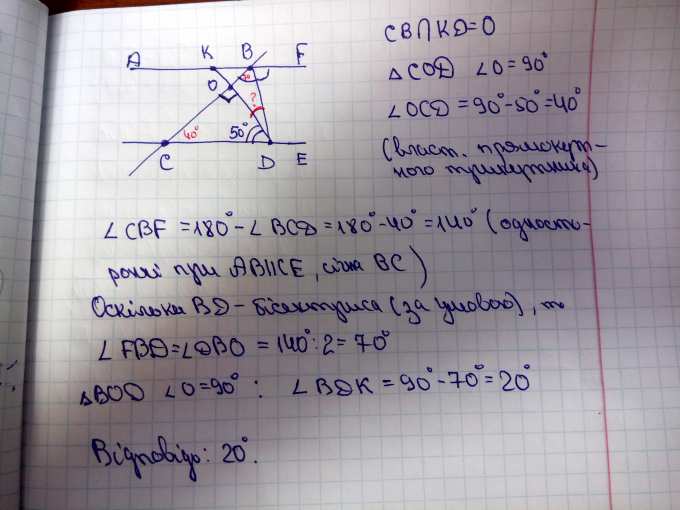 A K B F
O
?
40° 50°
C D E
CB∩KD=O
△COD ∠O=90°
∠OCD=90°-50°=40°
(власт. прямокут-
ного трикутника)
∠CBF=180°-∠BCD=180°-40°=140° (одност-
ронні при AB||CE, січна BC)
Оскільки BD-бісектриса (за умовою), то
∠FBD=∠DBO=140°:2=70°
△BOD ∠O=90°: ∠BDK=90°-70°=20°
Відповідь: 20°.